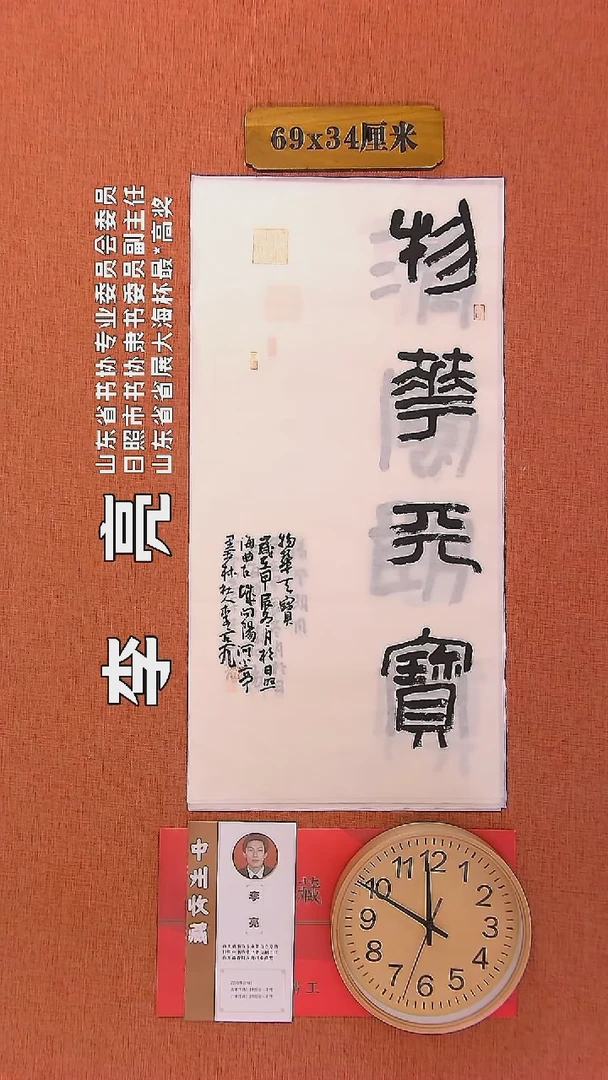 69x34厘米
物華天寶
物華天寶
歲在甲辰冬月於日照
海曲古城向陽河小亭
李亮
山东省书协专业委员会委员
日照市书协隶书委员副主任
山东省省展大海杯最*高奖
藏
李亮
12
1
2
3
4
5
6
7
8
9
10
11